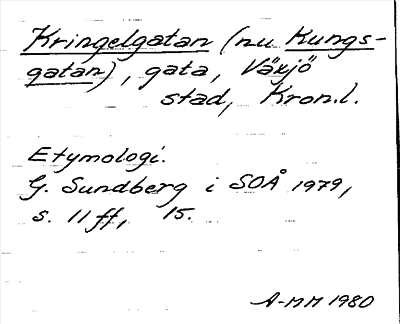 Kringelgatan (nu Kungs-
gatan), gata, Växjö
stad, Kron.l.
Etymologi.
G. Sundberg i SOÅ 1979,
s. 11 ff, 15.
A-MM 1980